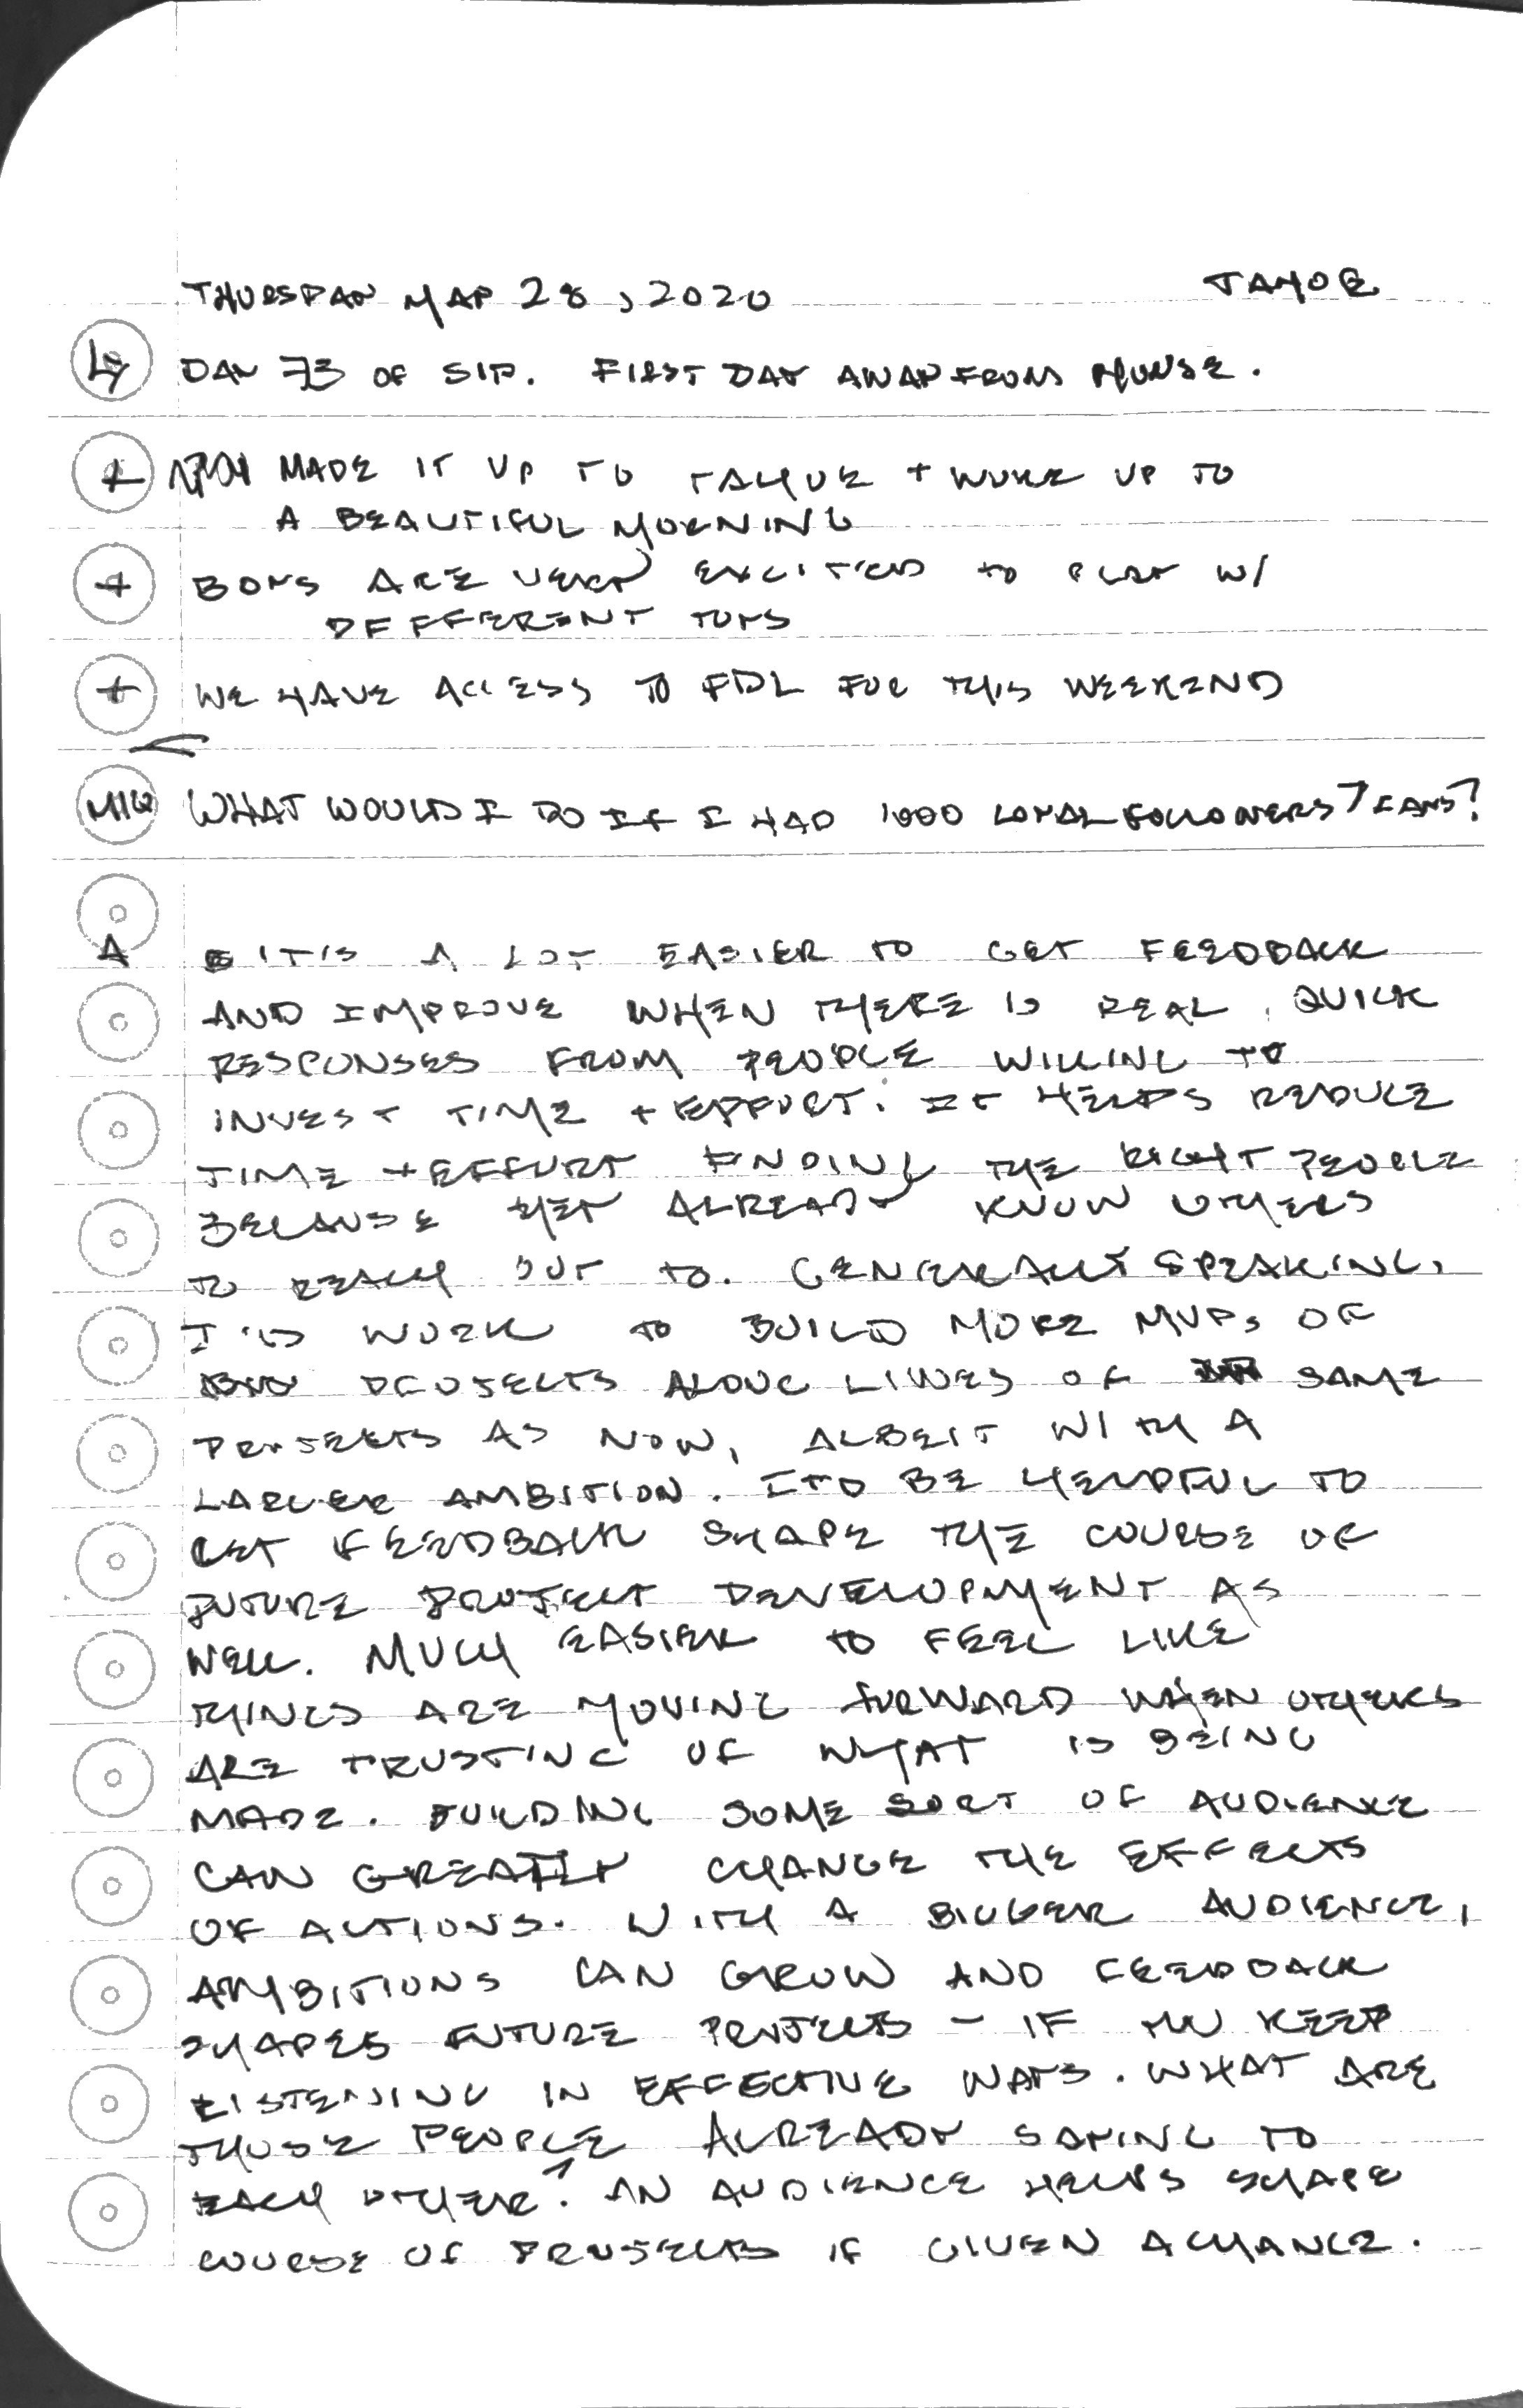 THURSDAY MAY 28, 2020 TAHOE
DAY 73 OF SIP. FIRST DAY AWAY FROM HOUSE.
+ MADE IT UP TO TAHOE + WOKE UP TO
A BEAUTIFUL MORNING
+ BOYS ARE VERY EXCITED TO PLAY W/
DIFFERENT TOYS
+ WE HAVE ACCESS TO FDL FOR THIS WEEKEND
WHAT WOULD I DO IF I HAD 1000 LOYAL FOLLOWERS / FANS?
A IT IS A LOT EASIER TO GET FEEDBACK
AND IMPROVE WHEN THERE IS REAL, QUICK
RESPONSES FROM PEOPLE WILLING TO
INVEST TIME + EFFORT. IT HELPS REDUCE
TIME + EFFORT FINDING THE RIGHT PEOPLE
BECAUSE THEY ALREADY KNOW OTHERS
TO REACH OUT TO. GENERALLY SPEAKING,
I'D WORK TO BUILD MORE MVPs OF
PROJECTS ALONG LINES OF SAME
PROJECTS AS NOW, ALBEIT WITH A
LARGER AMBITION. IT'D BE HELPFUL TO
LET FEEDBACK SHAPE THE COURSE OF
FUTURE PROJECT DEVELOPMENT AS
WELL. MUCH EASIER TO FEEL LIKE
THINGS ARE MOVING FORWARD WHEN OTHERS
ARE TRUSTING OF WHAT IS BEING
MADE. BUILDING SOME SORT OF AUDIENCE
CAN GREATLY CHANGE THE EFFECTS
OF ACTIONS. WITH A BIGGER AUDIENCE,
AMBITIONS CAN GROW AND FEEDBACK
SHAPES FUTURE PROJECTS - IF YOU KEEP
LISTENING IN EFFECTIVE WAYS. WHAT ARE
THOSE PEOPLE ALREADY SAYING TO
EACH OTHER? AN AUDIENCE HELPS SHAPE
COURSE OF PROJECTS IF GIVEN A CHANCE.